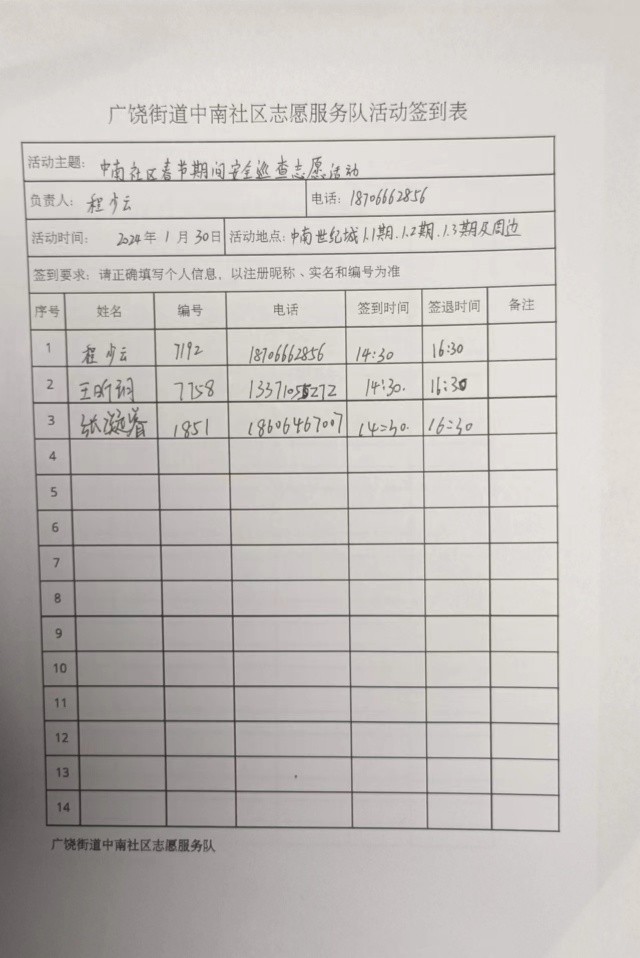 广饶街道中南社区志愿服务队活动签到表
活动主题： 中南社区春节期间安全巡查志愿活动
负责人： 程步云 电话： 18706662856
活动时间： 2024年 1 月 30日 活动地点：中南世纪城1.1期.1.2期.1.3期及周边
签到要求：请正确填写个人信息，以注册昵称、实名和编号为准
序号 姓名 编号 电话 签到时间 签退时间 备注
1 程步云 7192 18706662856 14:30 16:30
2 7758 14:30. 16:30
3 1851 18606467007 14:30. 16:30
4
5
6
7
8
9
10
11
12
13
14
广饶街道中南社区志愿服务队